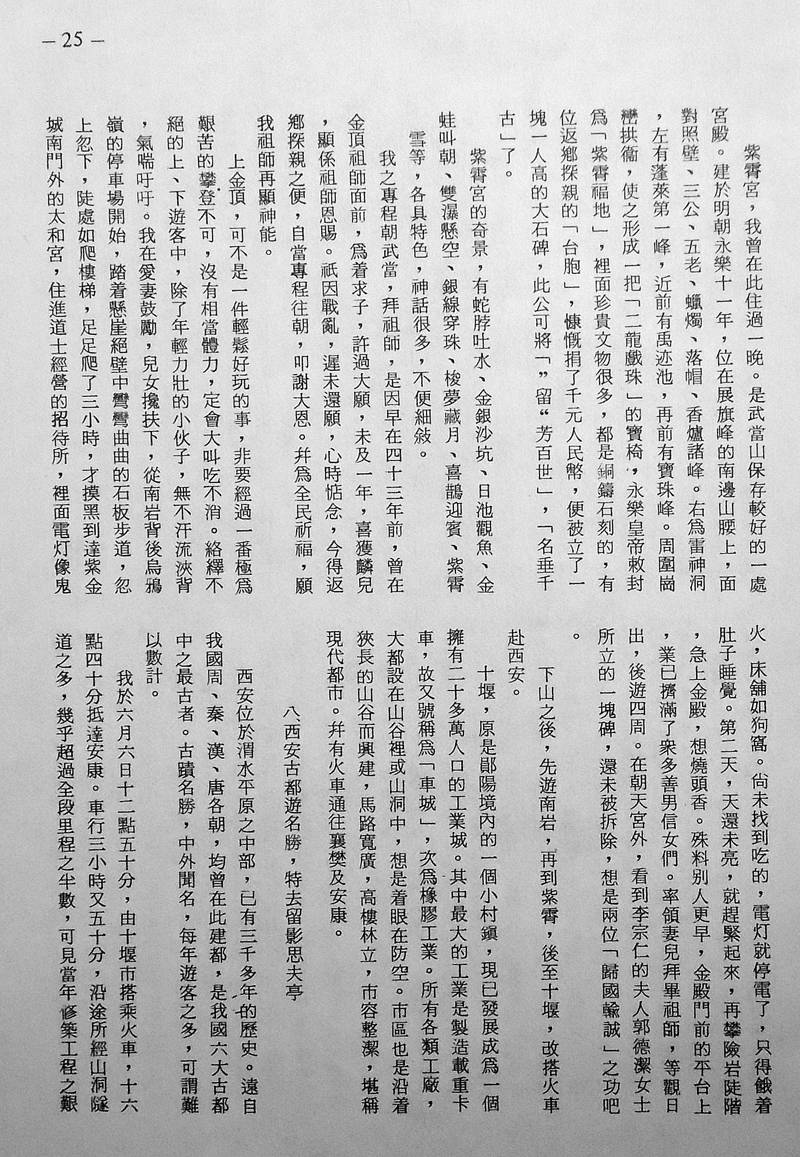 — 25 —
紫霄宮，我曾在此住過一晚。是武當山保存較好的一處
宮殿。建於明朝永樂十一年，位在展旗峰的南邊山腰上，面
對照壁、三公、五老、蠟燭、落帽、香爐諸峰。右爲雷神洞
，左有蓬萊第一峰，近前有禹迹池，再前有寶珠峰。周圍崗
巒拱衞，使之形成一把「二龍戲珠」的寶椅，永樂皇帝敕封
爲「紫霄福地」，裡面珍貴文物很多，都是銅鑄石刻的，有
位返鄉探親的「台胞」，慷慨捐了千元人民幣，便被立了一
塊一人高的大石碑，此公可將「”留“芳百世」，「名垂千
古」了。
紫霄宮的奇景，有蛇脖吐水、金銀沙坑、日池觀魚、金
蛙叫朝、雙瀑懸空、銀線穿珠、梭夢藏月、喜鵲迎賓、紫霄
雪等，各具特色，神話很多，不便細敍。
我之專程朝武當，拜祖師，是因早在四十三年前，曾在
金頂祖師面前，爲着求子，許過大願，未及一年，喜獲麟兒
，顯係祖師恩賜。祇因戰亂，遲未還願，心時惦念，今得返
鄉探親之便，自當專程往朝，叩謝大恩。幷爲全民祈福，願
我祖師再顯神能。
上金頂，可不是一件輕鬆好玩的事，非要經過一番極爲
艱苦的攀登不可，沒有相當體力，定會大叫吃不消。絡繹不
絕的上、下遊客中，除了年輕力壯的小伙子，無不汗流浹背
，氣喘吁吁。我在愛妻鼓勵，兒女攙扶下，從南岩背後烏鴉
嶺的停車場開始，踏着懸崖絕壁中彎彎曲曲的石板步道，忽
上忽下，陡處如爬樓梯，足足爬了三小時，才摸黑到達紫金
城南門外的太和宮，住進道士經營的招待所，裡面電灯像鬼
火，床舖如狗窩。尙未找到吃的，電灯就停電了，只得餓着
肚子睡覺。第二天，天還未亮，就趕緊起來，再攀險岩陡階
，急上金殿，想燒頭香。殊料別人更早，金殿門前的平台上
，業已擠滿了衆多善男信女們。率領妻兒拜畢祖師，等觀日
出，後遊四周。在朝天宮外，看到李宗仁的夫人郭德潔女士
所立的一塊碑，還未被拆除，想是兩位「歸國輸誠」之功吧
。
下山之後，先遊南岩，再到紫霄，後至十堰，改搭火車
赴西安。
十堰，原是鄖陽境內的一個小村鎭，現已發展成爲一個
擁有二十多萬人口的工業城。其中最大的工業是製造載重卡
車，故又號稱爲「車城」，次爲橡膠工業。所有各類工廠，
大都設在山谷裡或山洞中，想是着眼在防空。市區也是沿着
狹長的山谷而興建，馬路寬廣，高樓林立，市容整潔，堪稱
現代都市。幷有火車通往襄樊及安康。
八、西安古都遊名勝，特去留影思夫亭
西安位於渭水平原之中部，已有三千多年的歷史。遠自
我國周、秦、漢、唐各朝，均曾在此建都，是我國六大古都
中之最古者。古蹟名勝，中外聞名，每年遊客之多，可謂難
以數計。
我於六月六日十二點五十分，由十堰市搭乘火車，十六
點四十分抵達安康。車行三小時又五十分，沿途所經山洞隧
道之多，幾乎超過全段里程之半數，可見當年修築工程之艱